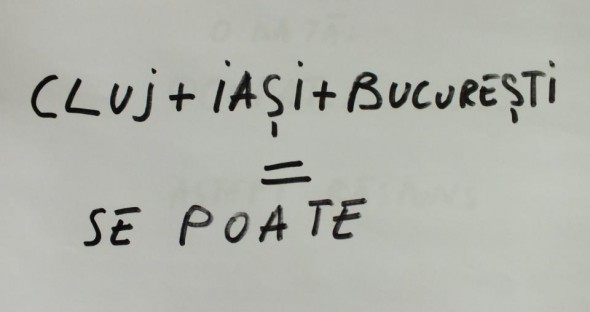 CLUj + iAȘi + BUCUREȘTi
=
SE POATE